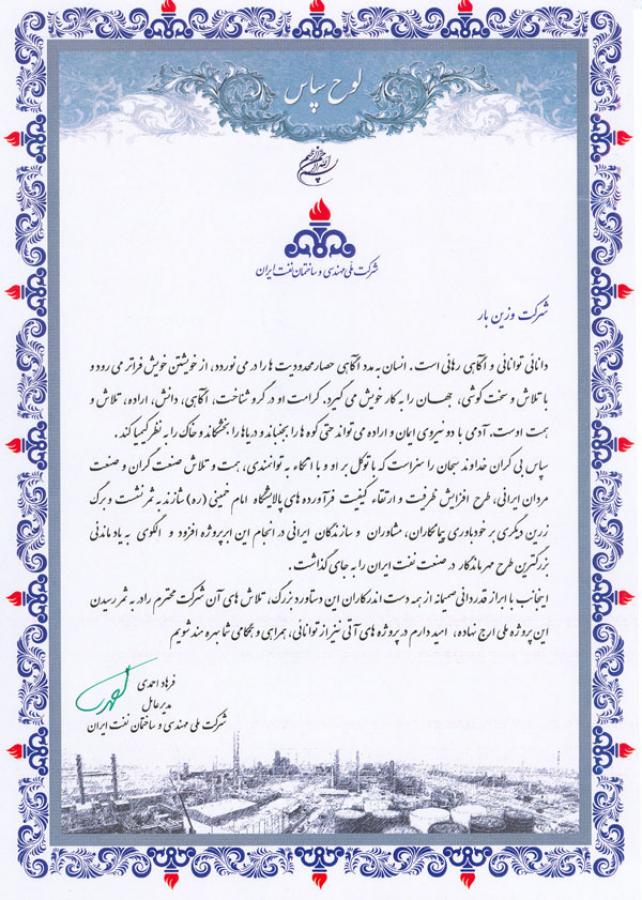 لوح سپاس
بسم الله الرحمن الرحیم
شرکت ملی مهندسی و ساختمان نفت ایران
شرکت وزین بار
دانائی توانائی و آگاهی رهائی است. انسان به مدد آگاهی حصار محدودیت ها را در می نوردد، از خویشتن خویش فراتر می رود و
با تلاش و سخت کوشی، جهان را به کار خویش می گیرد. کرامت او در گرو شناخت، آگاهی، دانش، اراده، تلاش و
همت اوست. آدمی با دو نیروی ایمان و اراده می تواند حتی کوه ها را بجنباند و دریاها را بخشکاند و خاک را به نظر کیمیا کند.
سپاس بی کران خداوند سبحان را سزاست که با توکل بر او و با اتکاء به توانمندی، همت و تلاش صنعت گران و صنعت
مردان ایرانی، طرح افزایش ظرفیت و ارتقاء کیفیت فرآورده های پالایشگاه امام خمینی (ره) شازند به ثمر نشست و برگ
زرین دیگری بر خودباوری پیمانکاران، مشاوران و سازندگان ایرانی در انجام این ابرپروژه افزود و الگوی به یاد ماندنی
بزرگترین طرح مهر ماندگار در صنعت نفت ایران را به جای گذاشت.
اینجانب با ابراز قدردانی صمیمانه از همه دست اندرکاران این دستاورد بزرگ، تلاش های آن شرکت محترم را در به ثمر رسیدن
این پروژه ملی ارج نهاده، امید دارم در پروژه های آتی نیز از توانائی، همراهی و همگامی شما بهره مند شویم
فرهاد احمدی
مدیر عامل
شرکت ملی مهندسی و ساختمان نفت ایران